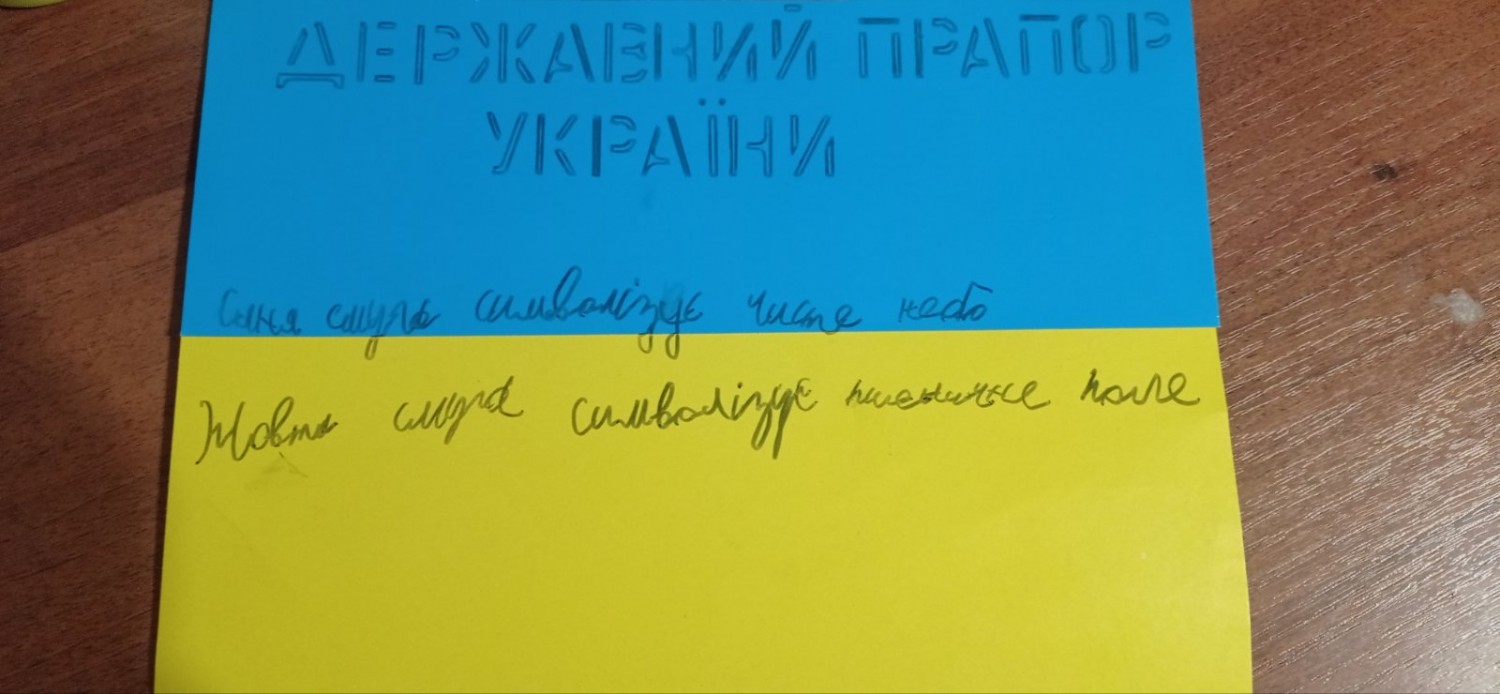 ДЕРЖАВНИЙ ПРАПОР
УКРАЇНИ
Синя смуга символізує чисте небо
Жовта смуга символізує пшеничне поле